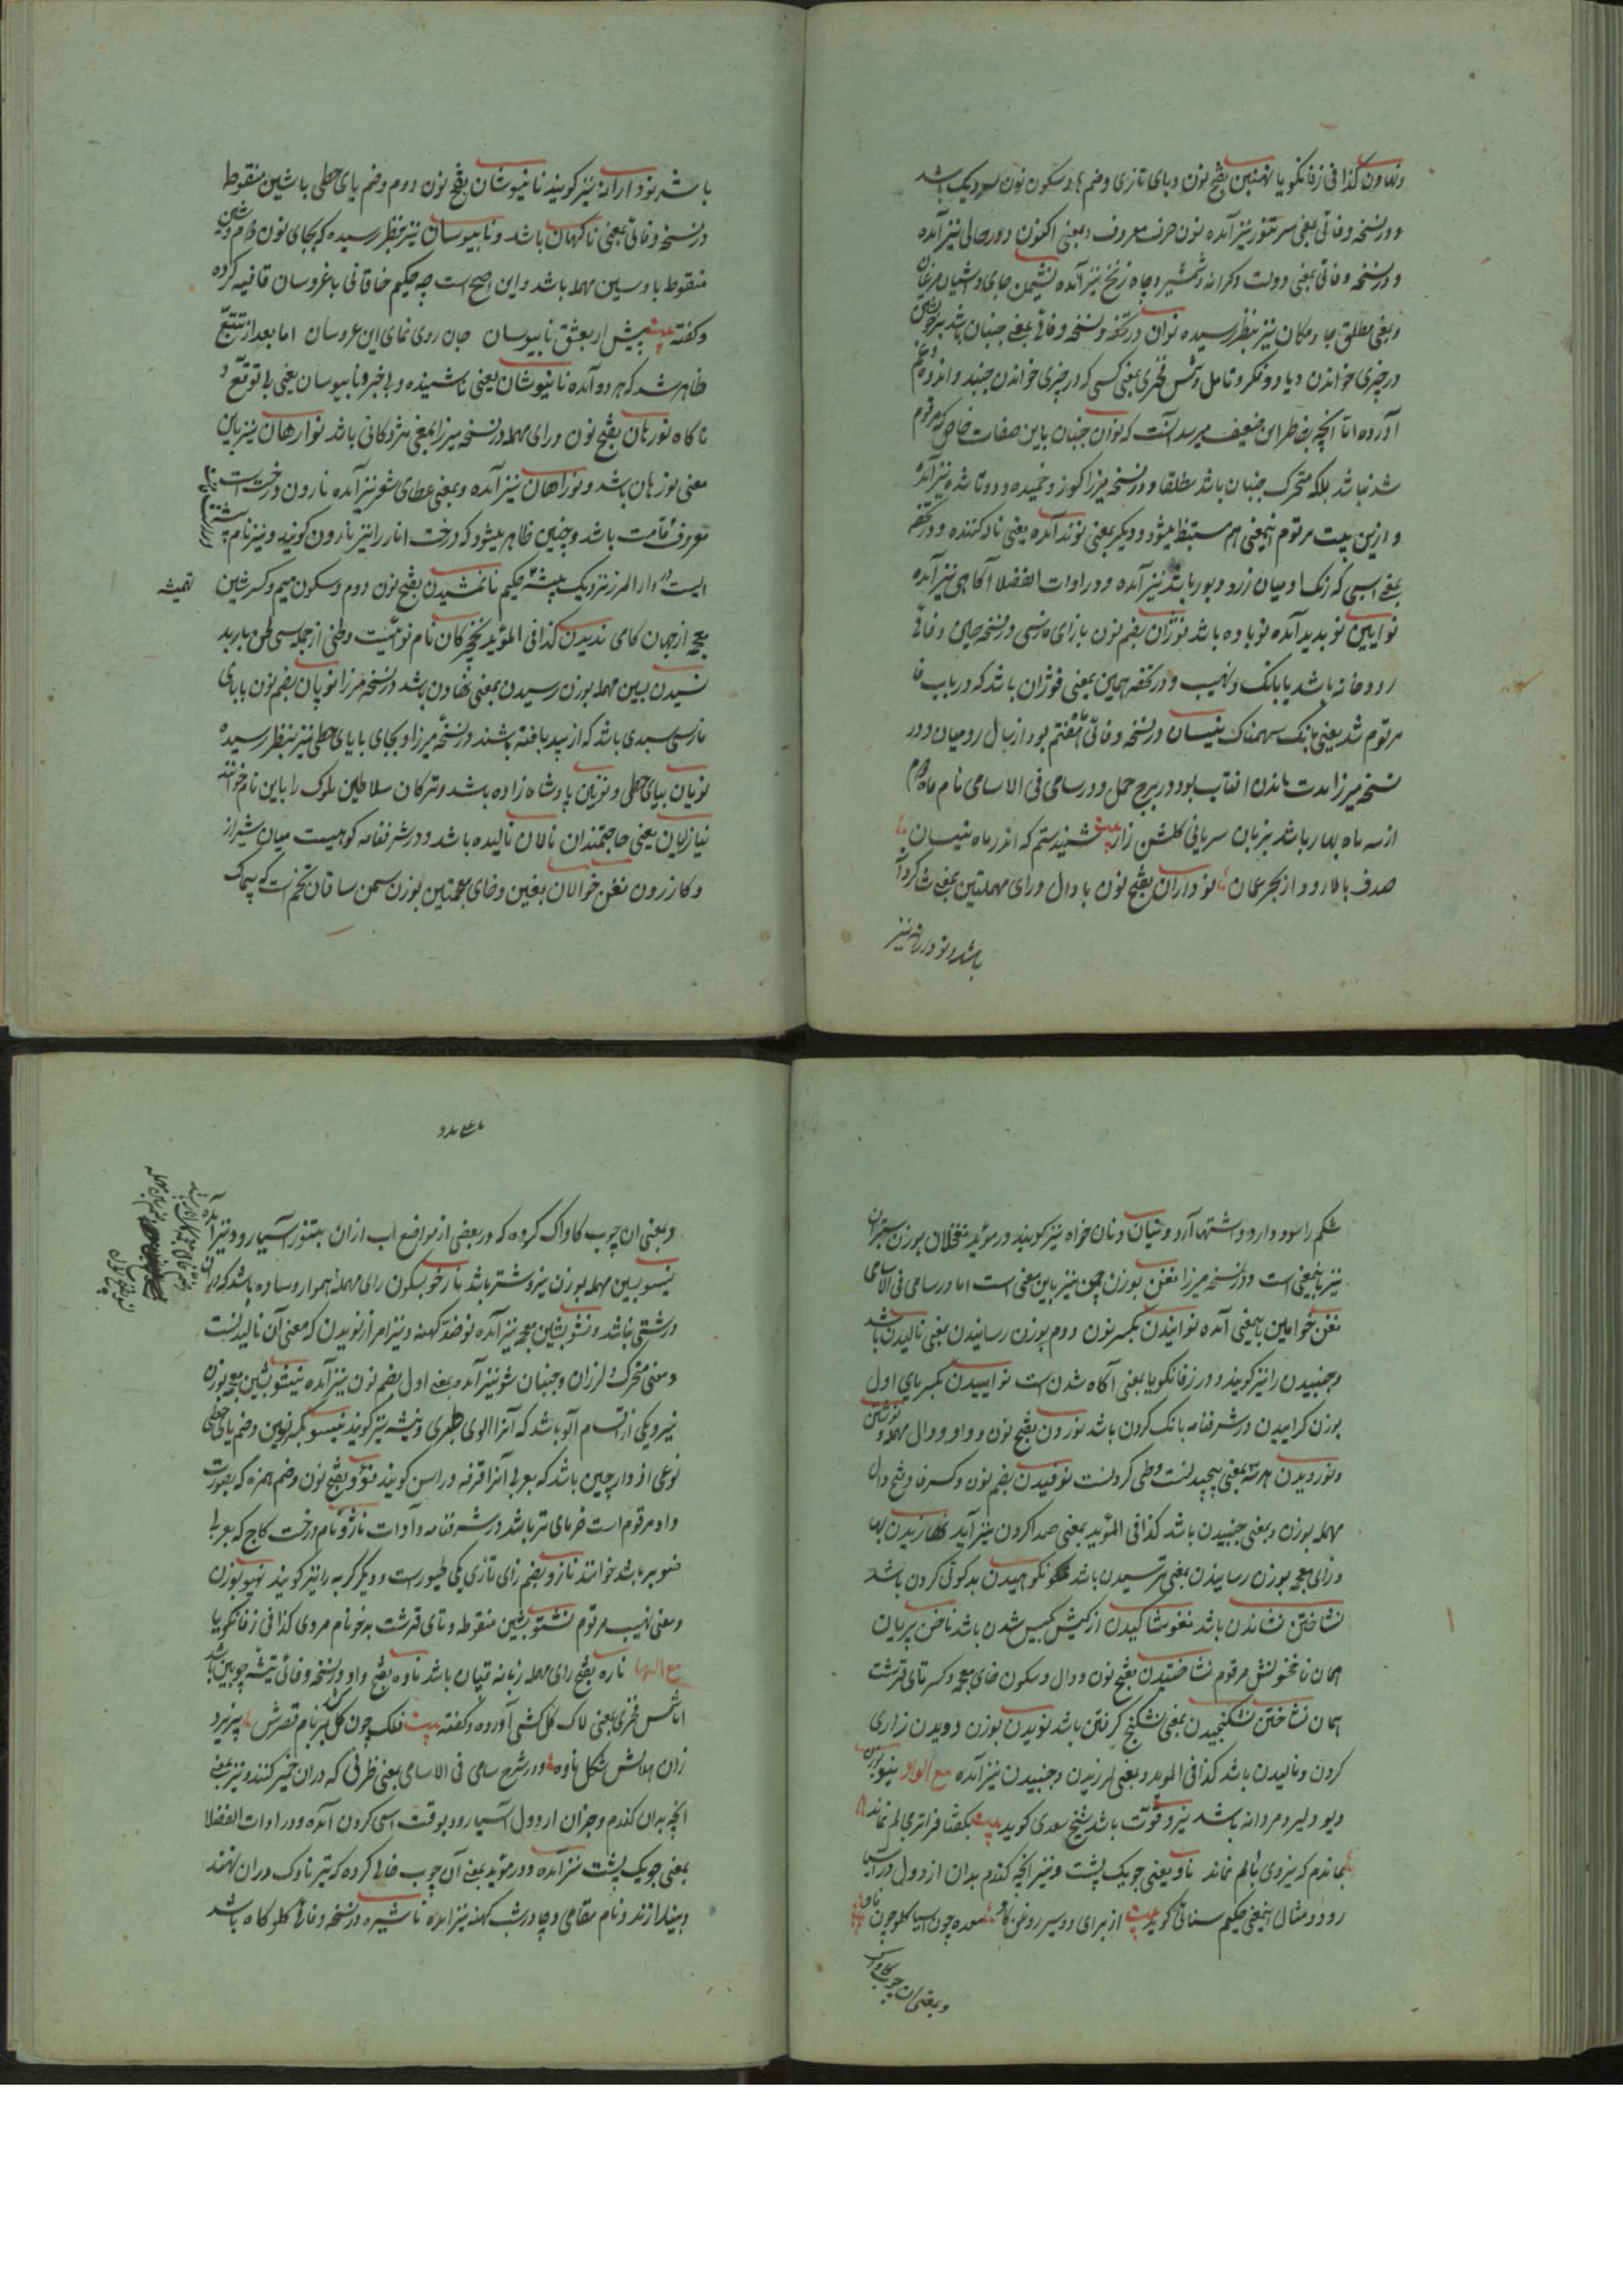 ونهاون کذا فی زفانکویا نهنبن بفتح نون و بای تازی وضم ها و سکون نون سر دیک باشد
و در نسخه وفائی بمعنی سر تنور نیز آمده نون حرف معروف و بمعنی اکنون و در حالی نیز آمده
و در نسخه وفائی بمعنی دولت و کرانه و شمشیر و چاه زنخ نیز آمده نشیمن جای و آشیان مرغان
و بمعنی مطلق جا و مکان نیز بنظر رسیده نوان در تحفه و نسخه وفائی بمعنی جنبان باشد
در چیزی خواندن و شمس فخری بمعنی کسی که در چیزی خواندن جنبد
آورده اما آنچه بخاطر این ضعیف میرسد آنست که نوان جنبان باین صفات خاص که مرقوم
شد نباشد بلکه متحرک و جنبان باشد مطلقا و در نسخه میرزا کوز و خمیده و دوتا شده نیز آمده
و ازین بیت مرقوم اینمعنی هم مستنبط میشود و دیگر بمعنی نوند آمده یعنی ناله کننده و در تحفه
بمعنی اسبی که رنک او میان زرد و بور باشد نیز آمده و در ادات الفضلا آگاهی نیز آمده
نوآیین نو پدید آمده نوباوه باشد نوژان بضم نون با زای فارسی در نسخه حلیمی وفائی
رودخانه باشد با بانک و نهیب و در تحفه همین بمعنی فوژان باشد که در باب فا
مرقوم شد یعنی بانک سهمناک نیسان در نسخه وفائی ماه هفتم بود از سال رومیان و در
نسخه میرزا مدت ماندن آفتاب بود در برج حمل و در سامی فی الاسامی نام ماه دوم
از سه ماه بهار باشد بزبان سریانی کلشن راز بیت شنیدستم که اندر ماه نیسان
صدف بالا رود از بحر عمان نوداران بفتح نون با دال و رای مهملتین بمعنی شاکردانه
باشد و نودارانه نیز
باشد نودارانه نیز کویند نانیوشان بفتح نون دوم وضم یای حطی با شین منقوط
در نسخه وفائی بمعنی ناکهان باشد و نابیوسان نیز بنظر رسیده که بجای نون دوم و شین
منقوط با و سین مهمله باشد و این اصح است چه حکیم خاقانی با عروسان قافیه کرده
و کفته بیت پیش ار بعشق نابیوسان جان روی نمای این عروسان اما بعد از تتبع
ظاهر شد که هر دو آمده نانیوشان یعنی ناشنیده و بی خبر و نابیوسان یعنی بی توقع و
ناکاه نورهان بفتح نون و رای مهمله در نسخه میرزا بمعنی مژدکانی باشد نوارهان نیز باین
معنی نورهان باشد و نوراهان نیز آمده و بمعنی عطای شعر نیز آمده نارون درختیست
معروف قامت باشد و چنین ظاهر میشود که درخت انار را نیز نارون کویند و نیز نام بیشه
ایست در دارالمرز نزدیک بیشه حکیم نانمشیدن بفتح نون دوم و سکون میم و کسر شین
معجمه از جهان کامی ندیدن کذا فی المؤید نخچرکان نام نوائیست و لحنی از جمله سی لحن باربد
نسیدن بسین مهمله بوزن رسیدن بمعنی نهادن باشد در نسخه میرزا نوپان بضم نون با بای
فارسی سبدی باشد که از بید بافته باشند در نسخه میرزا و بجای با یای حطی نیز بنظر رسیده
نویان بیای حطی و نوئین پادشاه زاده باشد و ترکان سلاطین ملوک را باین نام خوانند
نیازیان یعنی حاجتمندان نالان نالیده باشد و در شرفنامه کوهیست میان شیراز
و کازرون نغن خوالان بغین و خای معجمتین بوزن سمن ساقان تخمیست که
شکم را سود دارد و اشتها آرد و شیان و نان خواه نیز کویند در مؤید نغخلان بوزن
نیز باینمعنی است و در نسخه میرزا نغن بوزن چمن نیز باین معنی است اما در سامی فی الاسامی
نغن خوالین باینمعنی آمده نوانیدن بکسر نون دوم بوزن رسانیدن بمعنی نالیدن باشد
و جنبیدن را نیز کویند و در زفانکویا بمعنی آگاه شدن است نواییدن بکسر یای اول
بوزن کراییدن در شرفنامه بانک کردن باشد نوردن بفتح نون و واو و دال مهمله
و نوردیدن هر سه بمعنی پیچیدنست و طی کردنست نوفیدن بضم نون و کسر فا و فتح دال
مهمله بوزن و بمعنی جنبیدن باشد کذا فی المؤید بمعنی صدا کردن نیز آید نهازیدن بها
و زای معجمه بوزن رسانیدن بمعنی ترسیدن باشد نکوهیدن بدکوئی کردن باشد
نشاختن نشاندن باشد نغوشاکیدن از کیش بکیش شدن باشد ناخن پریان
همان ناخنخوش مرقوم نشاختیدن بفتح نون و دال و سکون خای معجمه و کسر تای قرشت
همان نشاختن نشکنجیدن بمعنی نشکنج کرفتن باشد نویدن بوزن دویدن زاری
کردن و نالیدن باشد کذا فی المؤید و بمعنی لرزیدن و جنبیدن نیز آمده مع الواو نیو بوزن
دیو دلیر و مردانه باشد نیرو قوت باشد شیخ سعدی کوید بیت بکفتا فراتر مجالم نماند
بماندم که نیروی بالم نماند ناو یعنی جویک پشت و نیز آنچه کندم بدان از دول در آسیا
رود و مثال اینمعنی حکیم سنائی کوید بیت از برای دو سیر روغن کاو معده چون آسیا کلو چون ناو
و بمعنی ان چوب کاواک
و بمعنی ان چوب کاواک کرده که در بعضی از مواضع اب از ان بتنوره آسیا رود و نیز آمده
نیسو بسین مهمله بوزن نیرو نشتر باشد نارخو بسکون رای مهمله هموار و ساده باشد که در او
درشتی نباشد و نشو بشین معجمه نیز آمده نو ضد کهنه و نیز امر از نویدن که معنی آن نالیدنست
و معنی متحرک و لرزان و جنبان شو نیز آمده و بمعنی اول بضم نون نیز آمده نیشو بشین معجمه بوزن
نیرو یکی از اقسام آلو باشد که آنرا الوی طبری و نیشه نیز کویند
نوعی از دارچین باشد که بعربی آنرا قرفه و راسن کویند نئو بفتح نون وضم همزه که بصورت
واو مرقوم است خرمای تر باشد در شرفنامه و ادات ناژو نام درخت کاج که بعربی
صنوبر باشد خوانند نازو بضم زای تازی یکی طیورست و دیگر کربه را نیز کویند نهیو بوزن
و معنی نهیب مرقوم نشتو بشین منقوطه و تای قرشت بدخو نام مردی کذا فی زفانکویا
مع الها ناره بفتح رای مهمله زبانه قپان باشد ناوه بفتح واو در نسخه وفائی تیشه چوبین باشد
اما شمس فخری بمعنی لاک کل کشی آورده و کفته بیت فلک چون کل کشد بر بام قصرش
زان هلالش شکل ناوه و در شرح سامی فی الاسامی بمعنی ظرفی که در ان خمیر کنند و نیز بمعنی
انچه بدان کندم و جز ان از دول آسیا رود بوقت اسی کردن آمده و در ادات الفضلا
بمعنی جویک پشت نیز آمده و در مؤید بمعنی آن چوب خالی کرده که تیر ناوک در ان نهند
و بیندازند و نام مقامی و چادرشب کهنه نیز آمده ناشیره در نسخه وفائی کلوکاه باشد